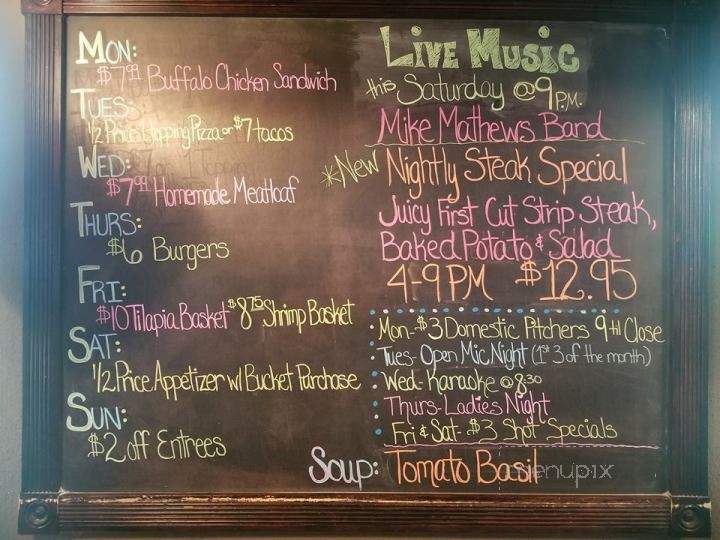 Mon:
$7.99 Buffalo Chicken Sandwich
Tues:
1/2 Price 1 topping Pizza or $7 tacos
Wed:
$7.99 Homemade Meatloaf
Thurs:
$6 Burgers
Fri:
$10 Tilapia Basket $8.75 Shrimp Basket
Sat:
1/2 Price Appetizer w/ Bucket Purchase
Sun:
$2 off Entrees
Live Music
this Saturday @ 9 P.M.
Mike Mathews Band
*New Nightly Steak Special
Juicy First Cut Strip Steak,
Baked Potato & Salad
4-9 PM $12.95
Mon-$3 Domestic Pitchers 9 til Close
Tues- Open Mic Night (1st 3 of the month)
Wed- Karaoke @ 8:30
Thurs- Ladies Night
Fri & Sat- $3 Shot Specials
Soup: Tomato Basil
menupix